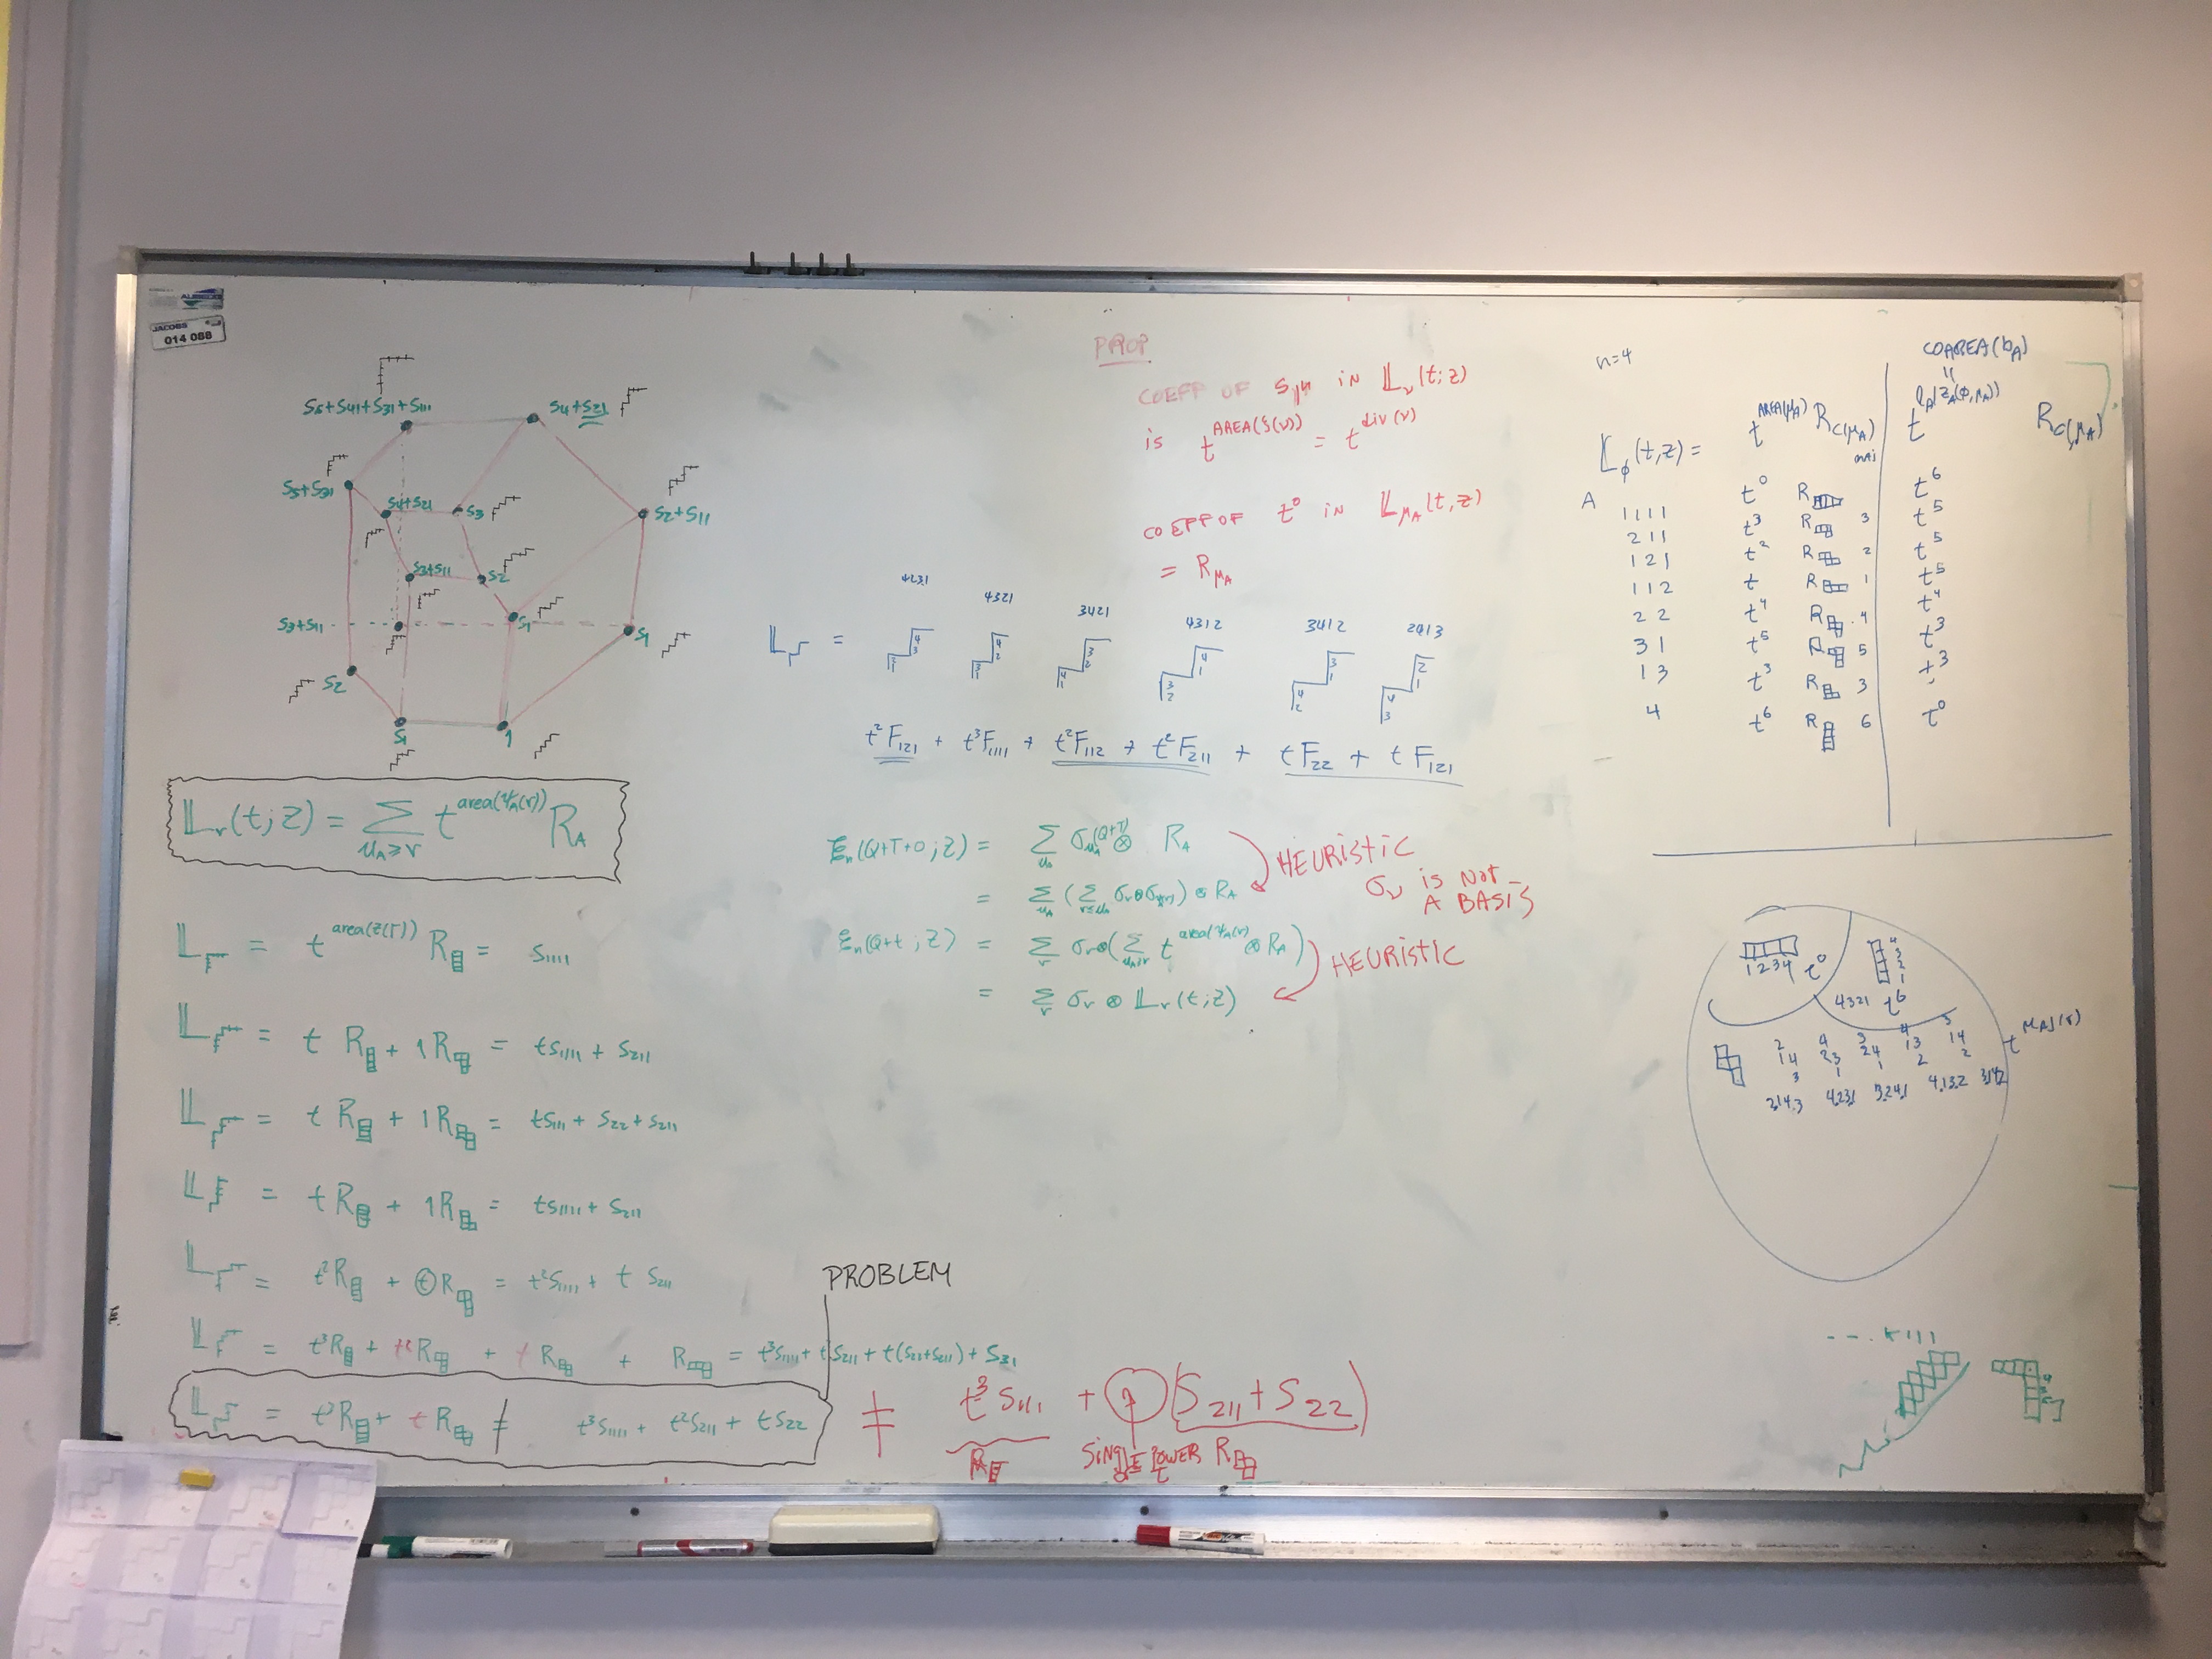 JACOBS
014 088
S5+S41+S31+S111
S4+S21
S5+S31
S4+S21
S3
S2+S11
S3+S11
S2
S3+S11
S1
S1
S2
S1
1
𝕃ᵥ(t;z) = Σ_{μA≥ν} t^{area(ψA(ν))} R_A
𝕃 = t^{area(z(Γ))} R = S1111
𝕃 = t R + 1R = tS1111 + S211
𝕃 = t R + 1R = tS1111 + S22 + S211
𝕃 = tR + 1R = tS1111 + S211
𝕃 = t²R + t R = t²S1111 + t S211
𝕃 = t³R + t²R + t R + R = t³S1111 + t²S211 + t(S22+S211) + S31
𝕃 = t³R + t R ≠ t³S1111 + t²S211 + tS22
PROBLEM
≠ t³ S1111 + ? (S211 + S22)
R
SINGLE POWER OF t R
PROP
COEFF OF S1n IN 𝕃ν(t;z)
IS t^{AREA(ζ(ν))} = t^{div(ν)}
COEFF OF t⁰ IN 𝕃μA(t,z)
= RμA
4231 4321 3421 4312 3412 2413
𝕃 =
t²F121 + t³F1111 + t²F112 + t²F211 + tF22 + tF121
ℰn(Q+T+0;z) = Σ σμA^{(Q+T)} ⊗ R_A
= Σ_{μA} (Σ_{ν≤μA} σν⊗σψ(ν)) ⊗ R_A
ℰn(Q+t;z) = Σ_ν σν⊗(Σ_{μA≥ν} t^{area(ψA(ν))} ⊗ R_A)
= Σ_ν σν ⊗ 𝕃ν(t;z)
HEURISTIC
σν IS NOT
A BASIS
HEURISTIC
n=4
COAREA(bA)
=
𝕃ϕ(t,z) = t^{AREA(μA)} R_{C(μA)} t^{ℓA(ZA(ϕ,μA))} R_{C(μA)}
maj
A
1111 t⁰ R t⁶
211 t³ R 3 t⁵
121 t² R 2 t⁵
112 t R 1 t⁵
22 t⁴ R 4 t⁴
31 t⁵ R 5 t³
13 t³ R 3 t³
4 t⁶ R 6 t⁰
1234 t⁰
4
3
2
1
4321 t⁶
t^{MAJ(r)}
2 4 3 4 5
14 23 24 13 14
3 1 1 2 2
2.14.3 4.23.1 3.24.1 4.13.2 3.14.2